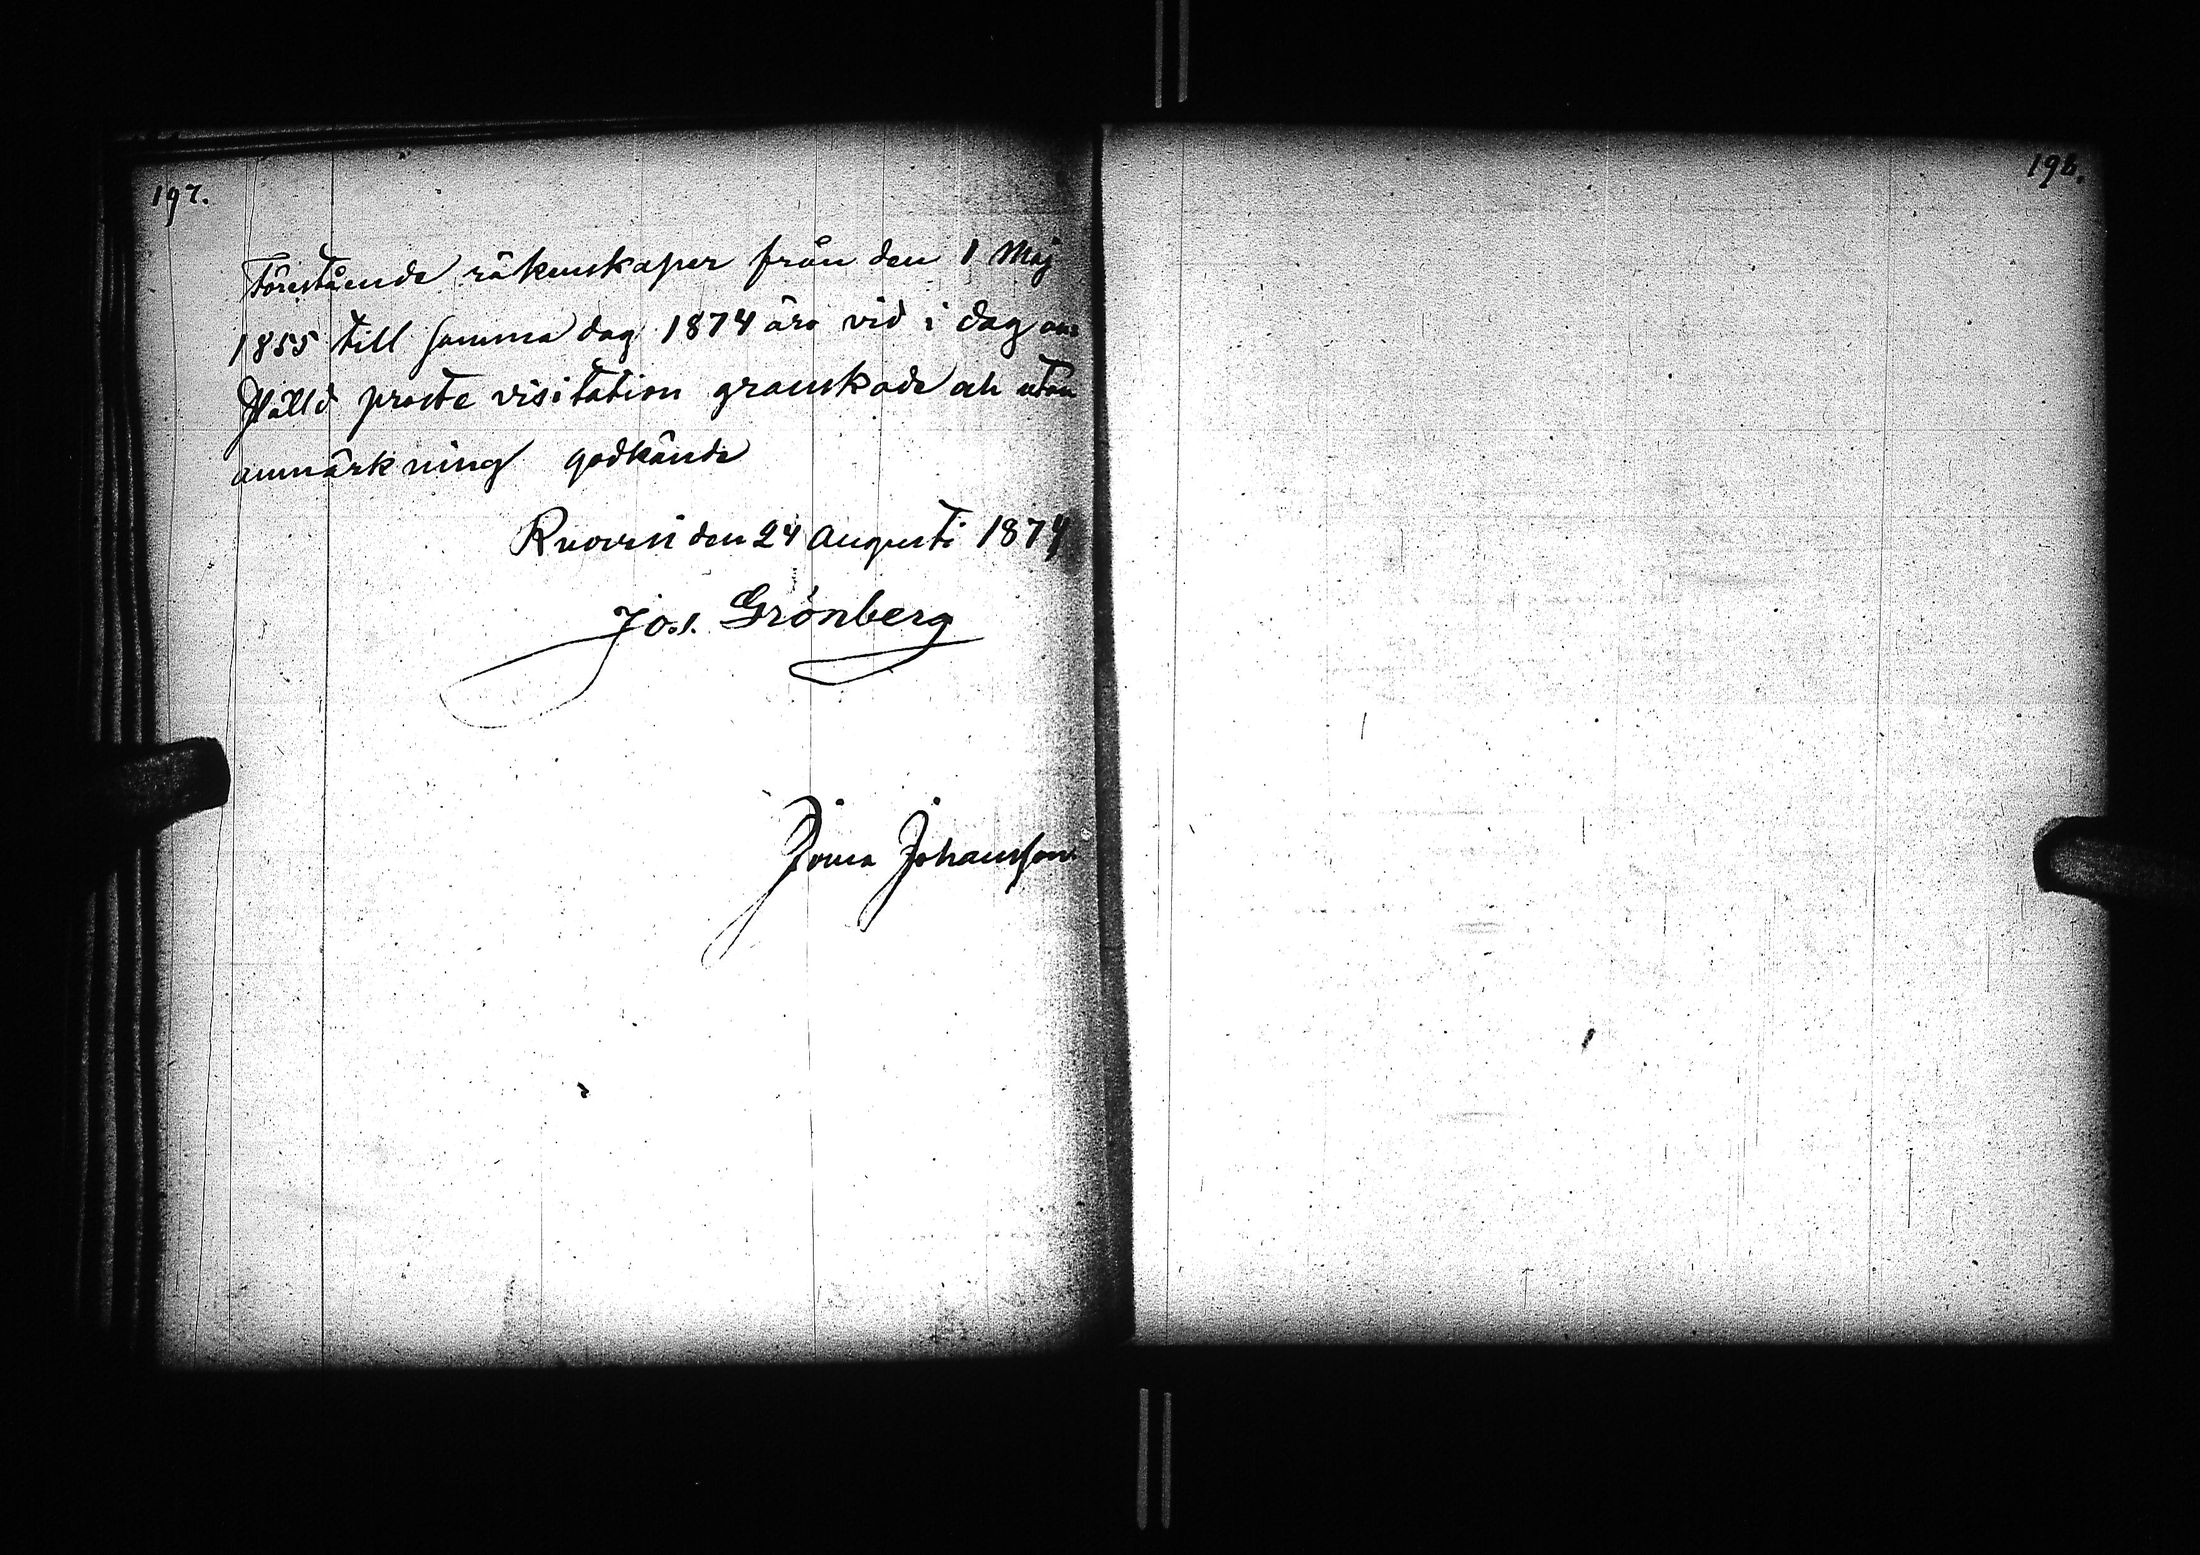 197.
Förestående räkenskaper från den 1 Maj
1855 till samma dag 1874 äro vid i dag an-
ställd proste visitation granskade och utan
anmärkning godkände
Ruovesi den 24 Augusti 1874
Jos. Grönberg
Johansson
198.